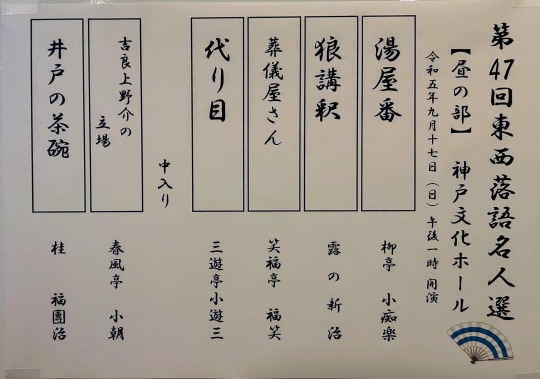 第47回東西落語名人選
【昼の部】 神戸文化ホール
令和五年九月十七日(日)午後一時 開演
湯屋番
柳亭 小痴楽
狼講釈
露の新治
葬儀屋さん
笑福亭 福笑
代り目
三遊亭小遊三
中入り
吉良上野介の
立場
春風亭 小朝
井戸の茶碗
桂 福團治